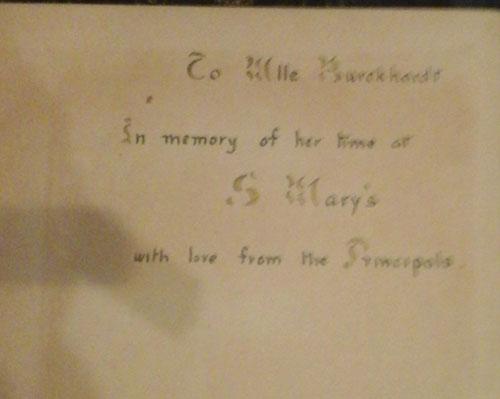 To Mlle Burckhardt
In memory of her time at
S Mary's
with love from the Principals.